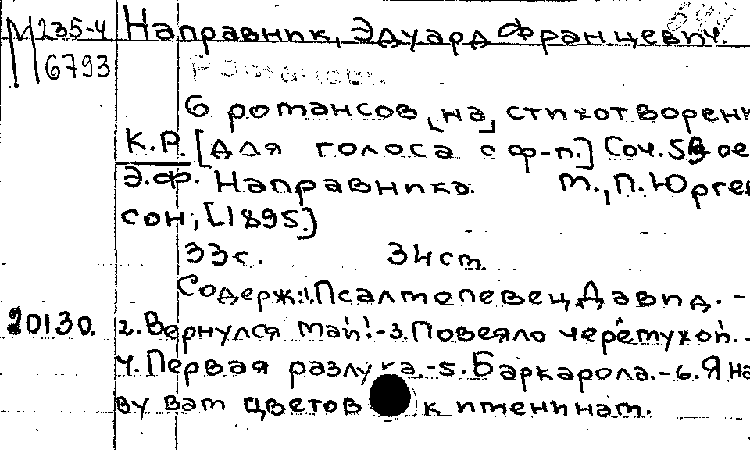 М235-4 Направник, Эдуард Францевич.
6793 Романсы.
6 романсов [на] стихотворени
К.Р. [Для голоса с ф-п.] Соч. 59-ое
Э.Ф. Направника. М., П. Юрген
сон, [1895.]
33с. 34ст
Содерж.:1.Псалмопевец Давид. -
20130. 2.Вернулся май! -3.Повеяло черемухой. -
4.Первая разлука.-5.Баркарола.-6.Я на
ву вам цветов к именинам.